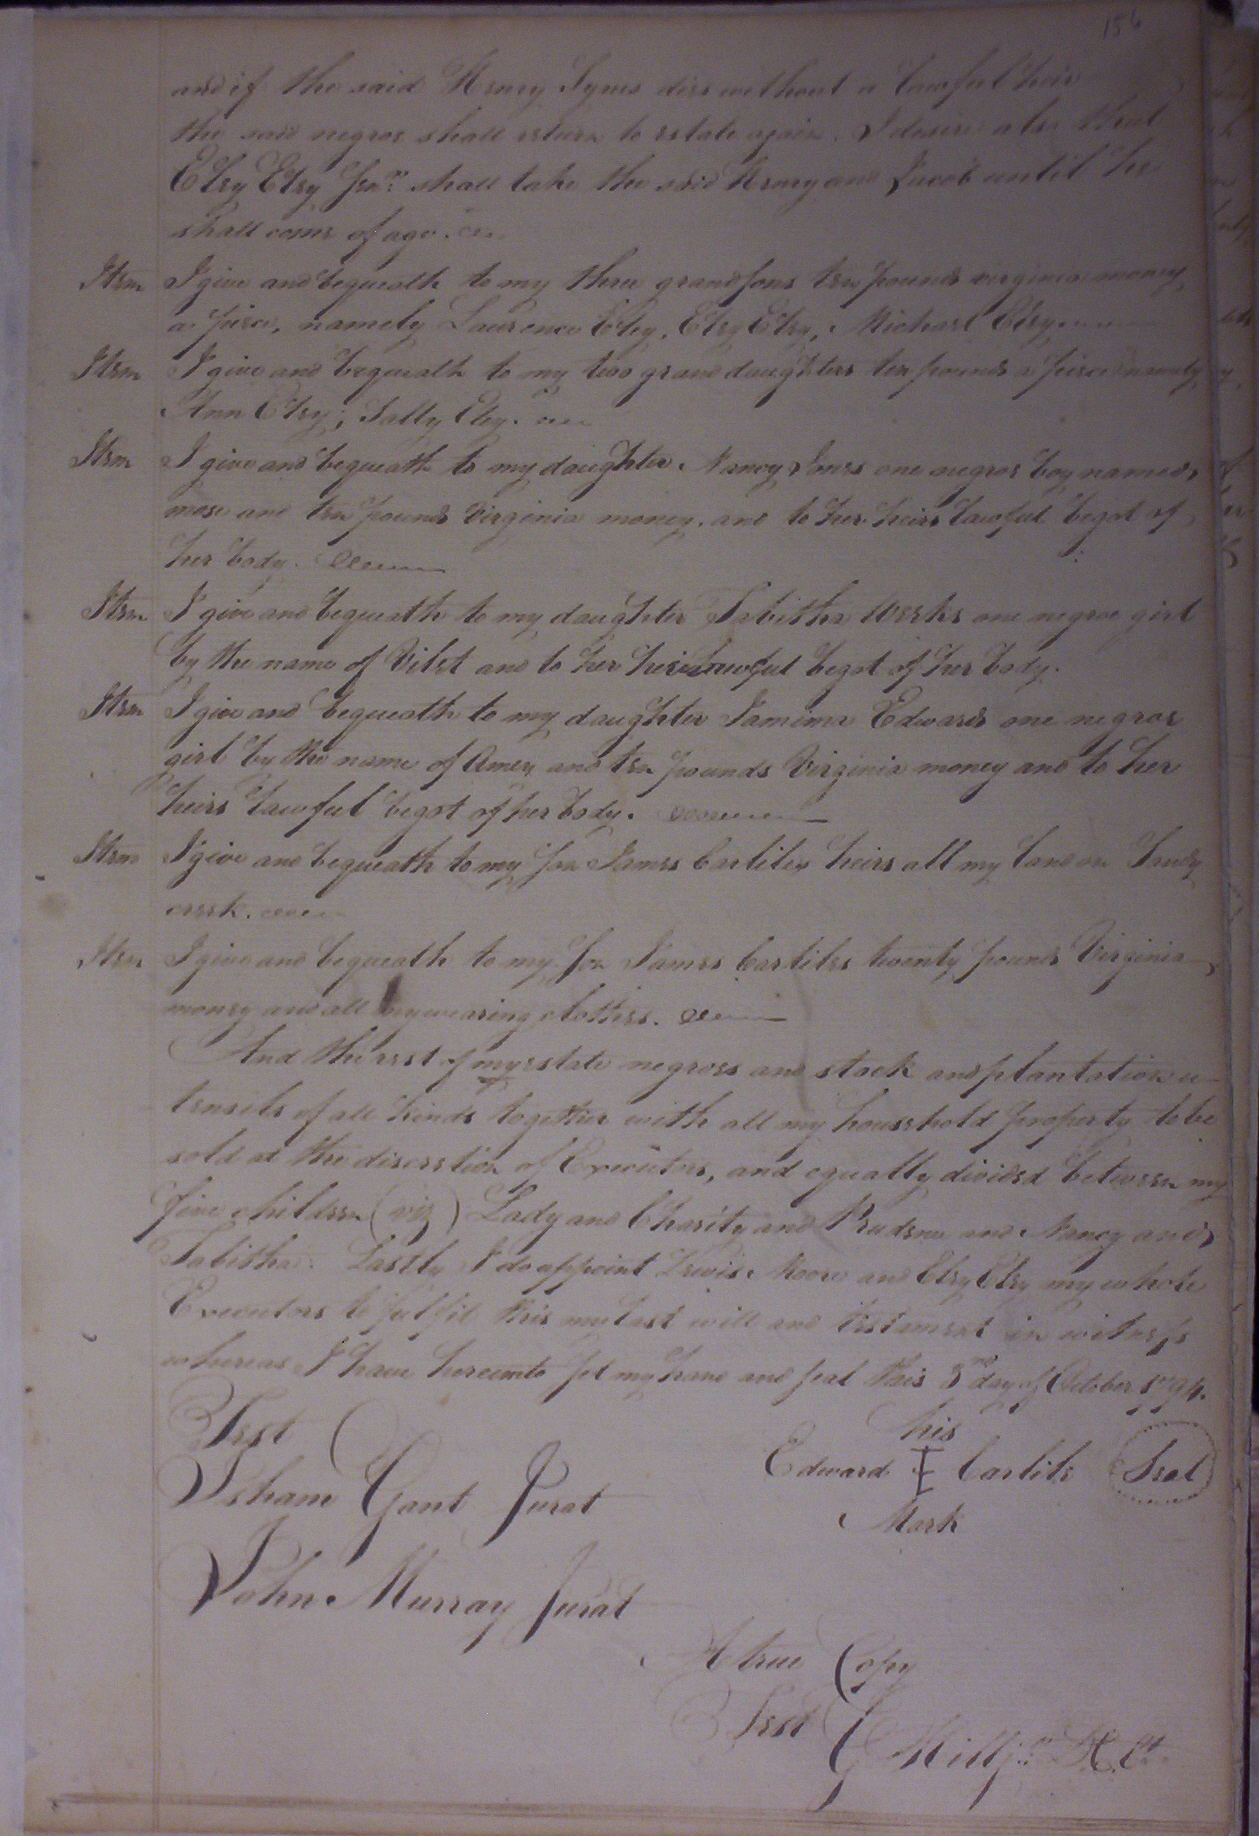 156
and if the said Henry Lynes dies without a lawful heir
the said negroe shall return to estate again. I desire also that
Eley Eley Senr. shall take the said Henry and Jacob until he
shall come of age.
Item I give and bequeath to my three grandsons ten pounds virginia money
a peice, namely Laurence Eley, Eley Eley, Michael Eley
Item I give and bequeath to my two grand daughters ten pounds a peice namely
Ann Eley, Sally Eley.
Item I give and bequeath to my daughter Nancy Jones one negroe boy named
mose and ten pounds Virginia money. and to her heirs lawful begot of
her body.
Item I give and bequeath to my daughter Tabitha Weeks one negroe girl
by the name of Vilet and to her heirs lawful begot of her body.
Item I give and bequeath to my daughter Jamima Edwards one negroe
girl by the name of Amey and ten pounds Virginia money and to her
heirs lawful begot of her body.
Item I give and bequeath to my son James Carliles heirs all my land on Sandy
creek.
Item I give and bequeath to my son James Carliles twenty pounds Virginia
money and all my wearing clothes.
And the rest of my estate negroes and stock and plantation u-
tensils of all kinds together with all my household property to be
sold at the discretion of Executors, and equally divided between my
five children (viz) Lady and Charity and Prudence and Nancy and
Tabitha. Lastly I do appoint Lewis Moore and Eley Eley my whole
Executors to fulfil this my last will and testament in witness
whereas I have hereunto set my hand and seal this 3nd day of October 1794.
Test his
Isham Gant Jurat Edward Carlile Seal
Mark
John Murray Jurat
A true Copy
Test
G Hill jr.